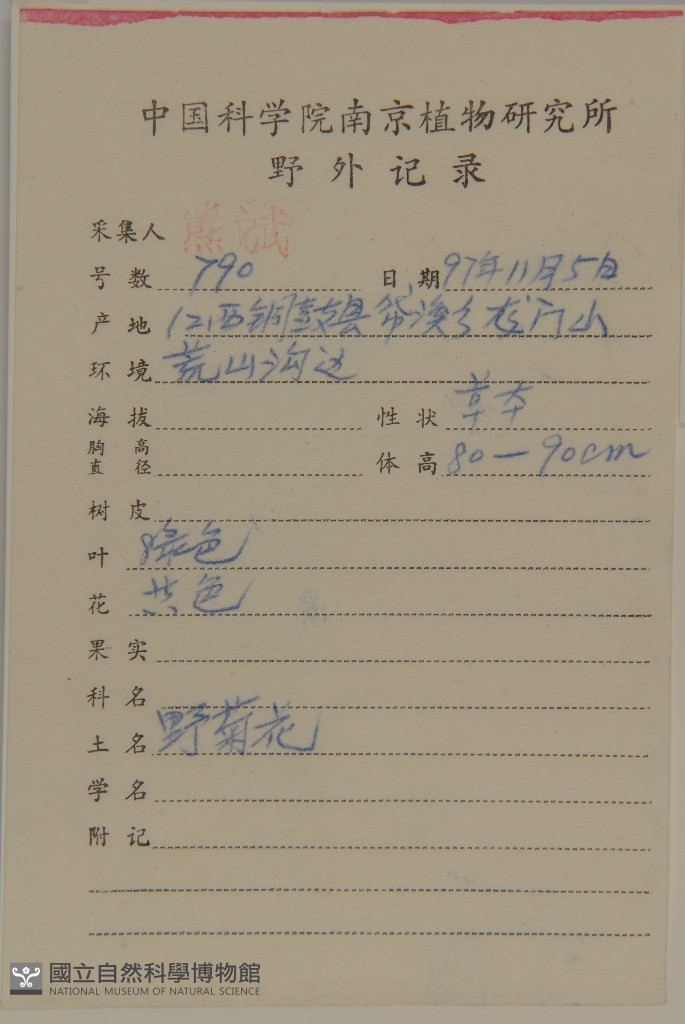 中国科学院南京植物研究所
野外记录
采集人 熊
号数 790 日期 97年11月5日
产地 江西铜鼓县 溪乡龙门山
环境 荒山沟边
海拔 性状 草本
胸高直径 体高 80—90cm
树皮
叶 绿色
花 黄色
果实
科名
土名 野菊花
学名
附记
國立自然科學博物館
NATIONAL MUSEUM OF NATURAL SCIENCE